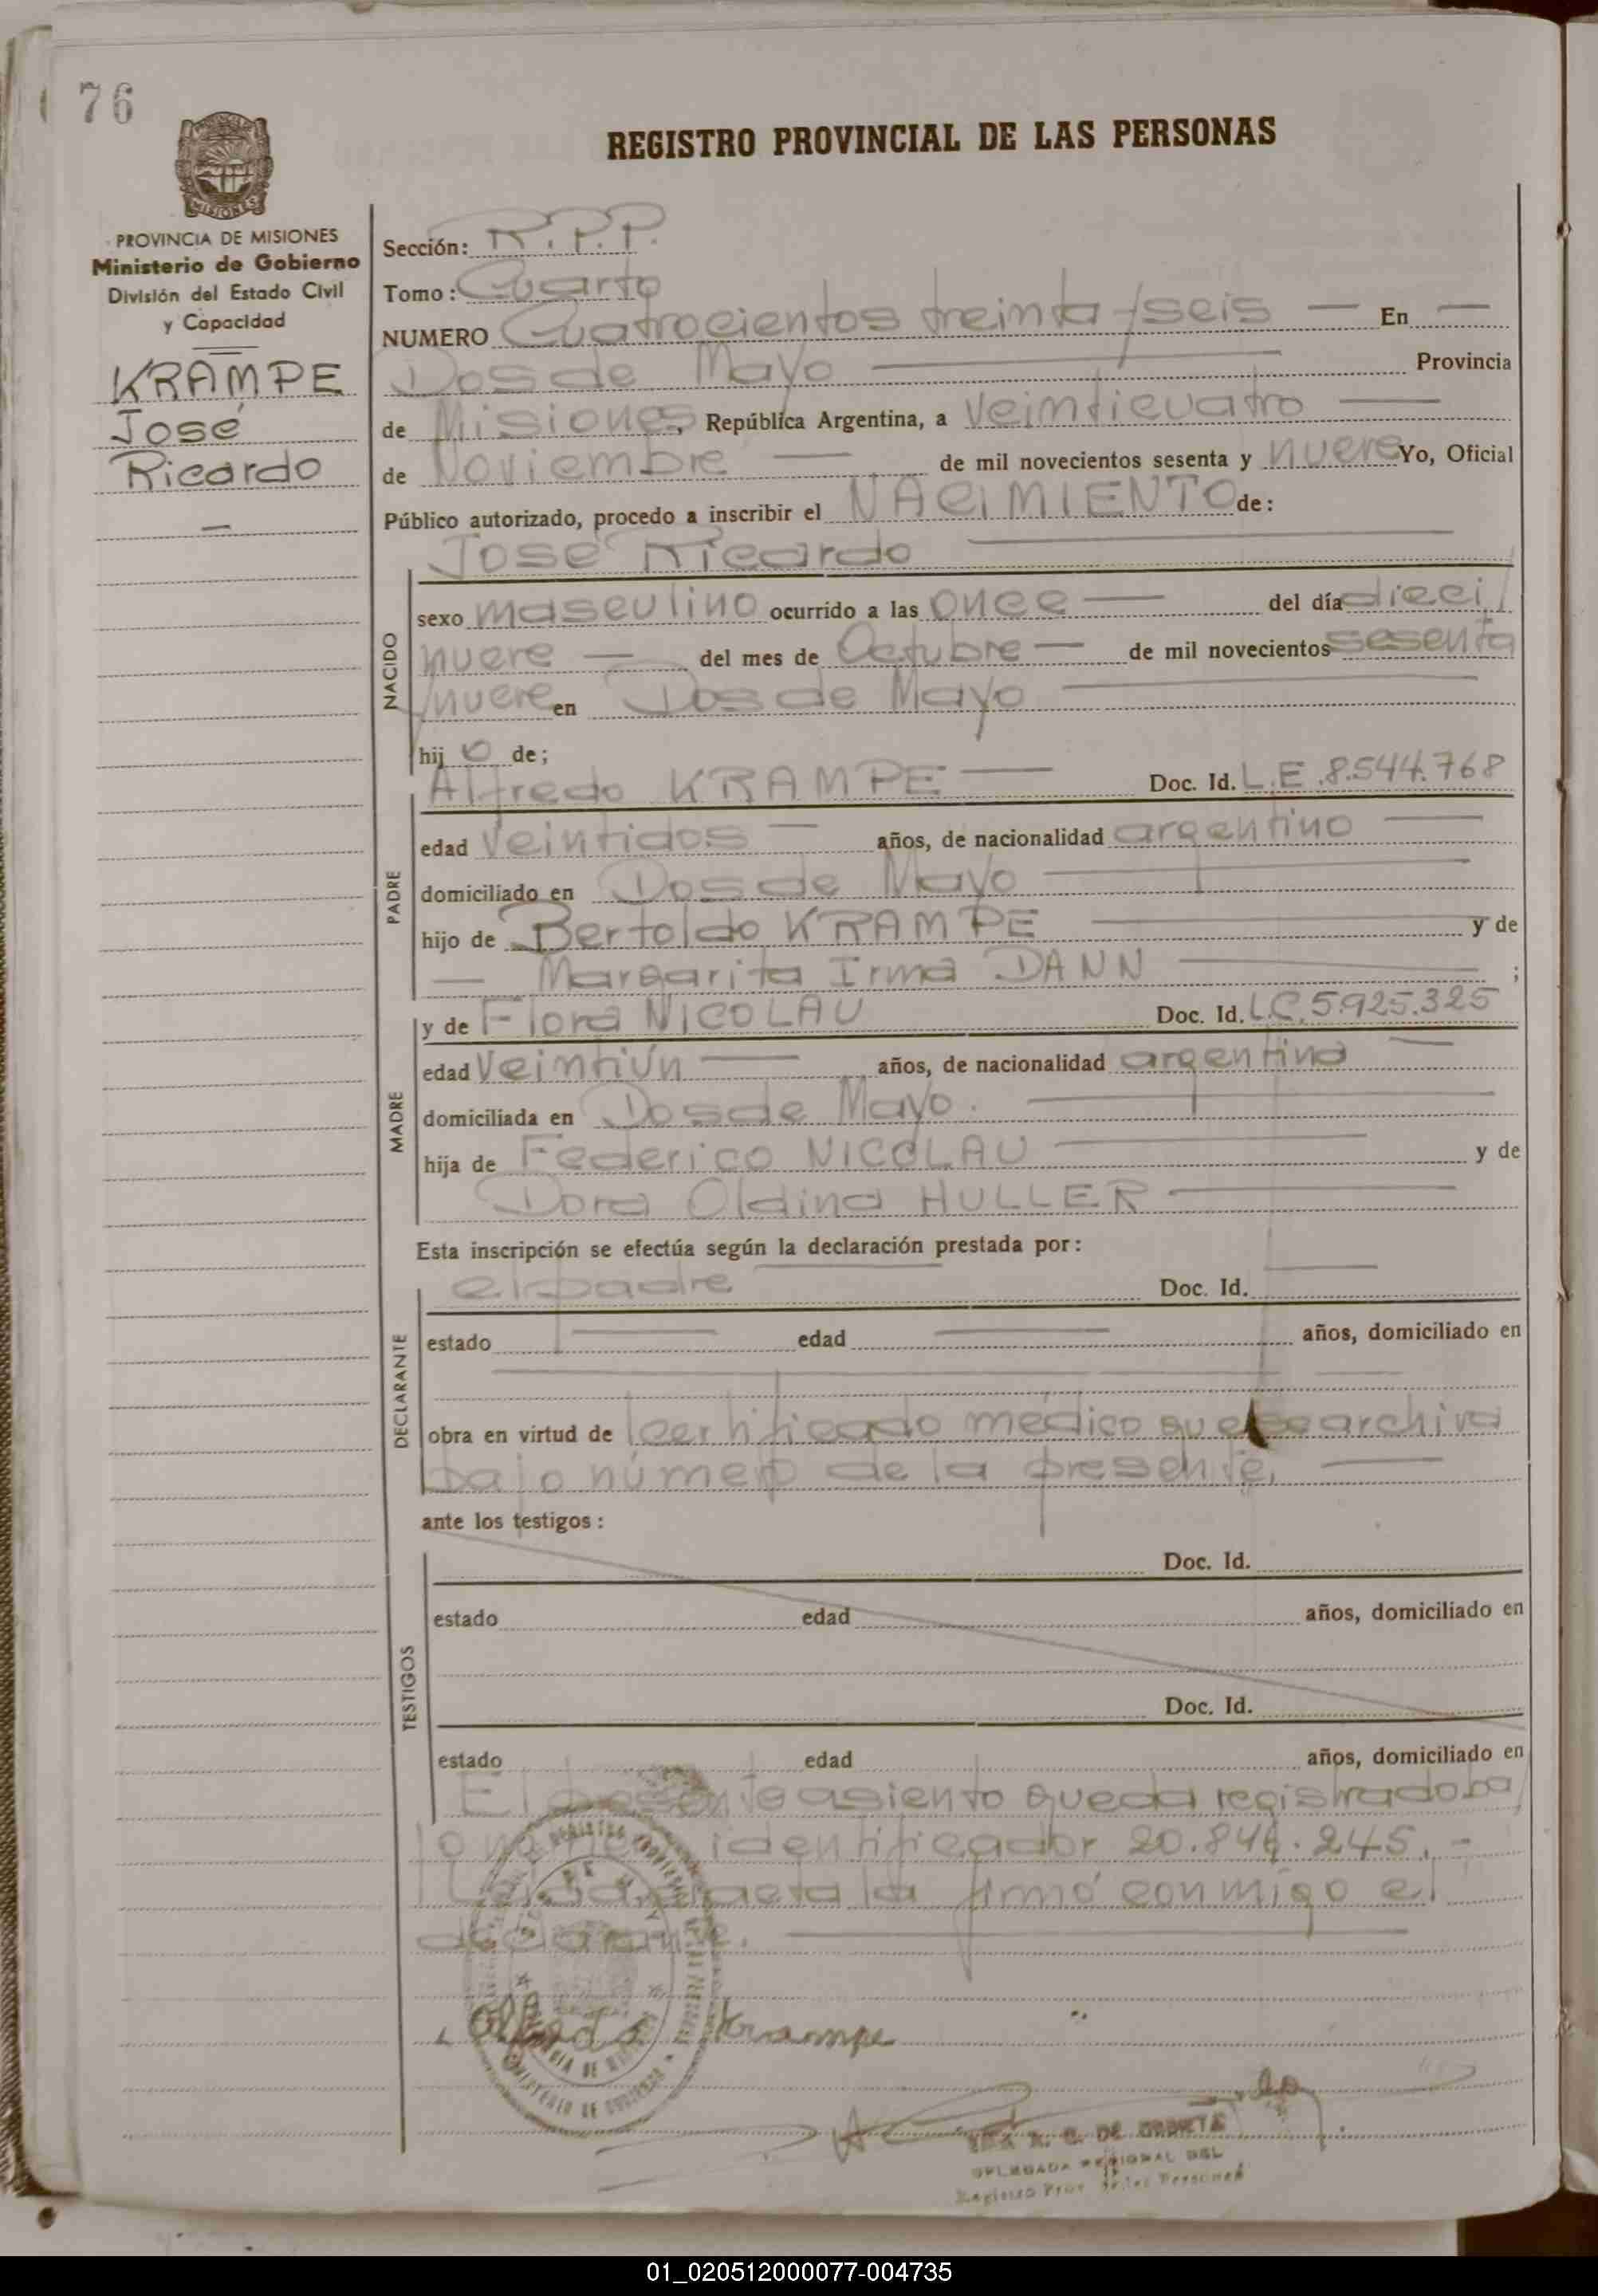 76
MISIONES
PROVINCIA DE MISIONES
Ministerio de Gobierno
División del Estado Civil
y Capacidad
KRAMPE
José
Ricardo
REGISTRO PROVINCIAL DE LAS PERSONAS
Sección: R.P.P.
Tomo: Cuarto
NUMERO Cuatrocientos treinta y seis — En —
Dos de Mayo — Provincia
de Misiones, República Argentina, a Veinticuatro —
de Noviembre — de mil novecientos sesenta y nueve Yo, Oficial
Público autorizado, procedo a inscribir el NACIMIENTO de:
José Ricardo —
NACIDO
sexo masculino ocurrido a las once — del día dieci
nueve — del mes de Octubre — de mil novecientos sesenta
y nueve en Dos de Mayo —
hijo de;
PADRE
Alfredo KRAMPE — Doc. Id. L.E.8.544.768
edad Veintidos — años, de nacionalidad argentino —
domiciliado en Dos de Mayo —
hijo de Bertoldo KRAMPE — y de
— Margarita Irma DANN — ;
MADRE
y de Flora NICOLAU Doc. Id. L.C.5.925.325
edad Veintiún — años, de nacionalidad argentina —
domiciliada en Dos de Mayo. —
hija de Federico NICOLAU — y de
Dora Oldina HULLER —
Esta inscripción se efectúa según la declaración prestada por:
DECLARANTE
el padre — Doc. Id. —
estado — edad — años, domiciliado en
—
obra en virtud de certificado médico que se archiva
bajo número de la presente, —
ante los testigos:
TESTIGOS
Doc. Id.
estado edad años, domiciliado en
Doc. Id.
estado edad años, domiciliado en
El presente asiento queda registrado ba
jo identificador 20.846.245.-
acta la firmó conmigo el
declarante. —
Alfredo Krampe
DE
DELEGADA REGIONAL DEL
Registro Prov. de las Personas
01_020512000077-004735